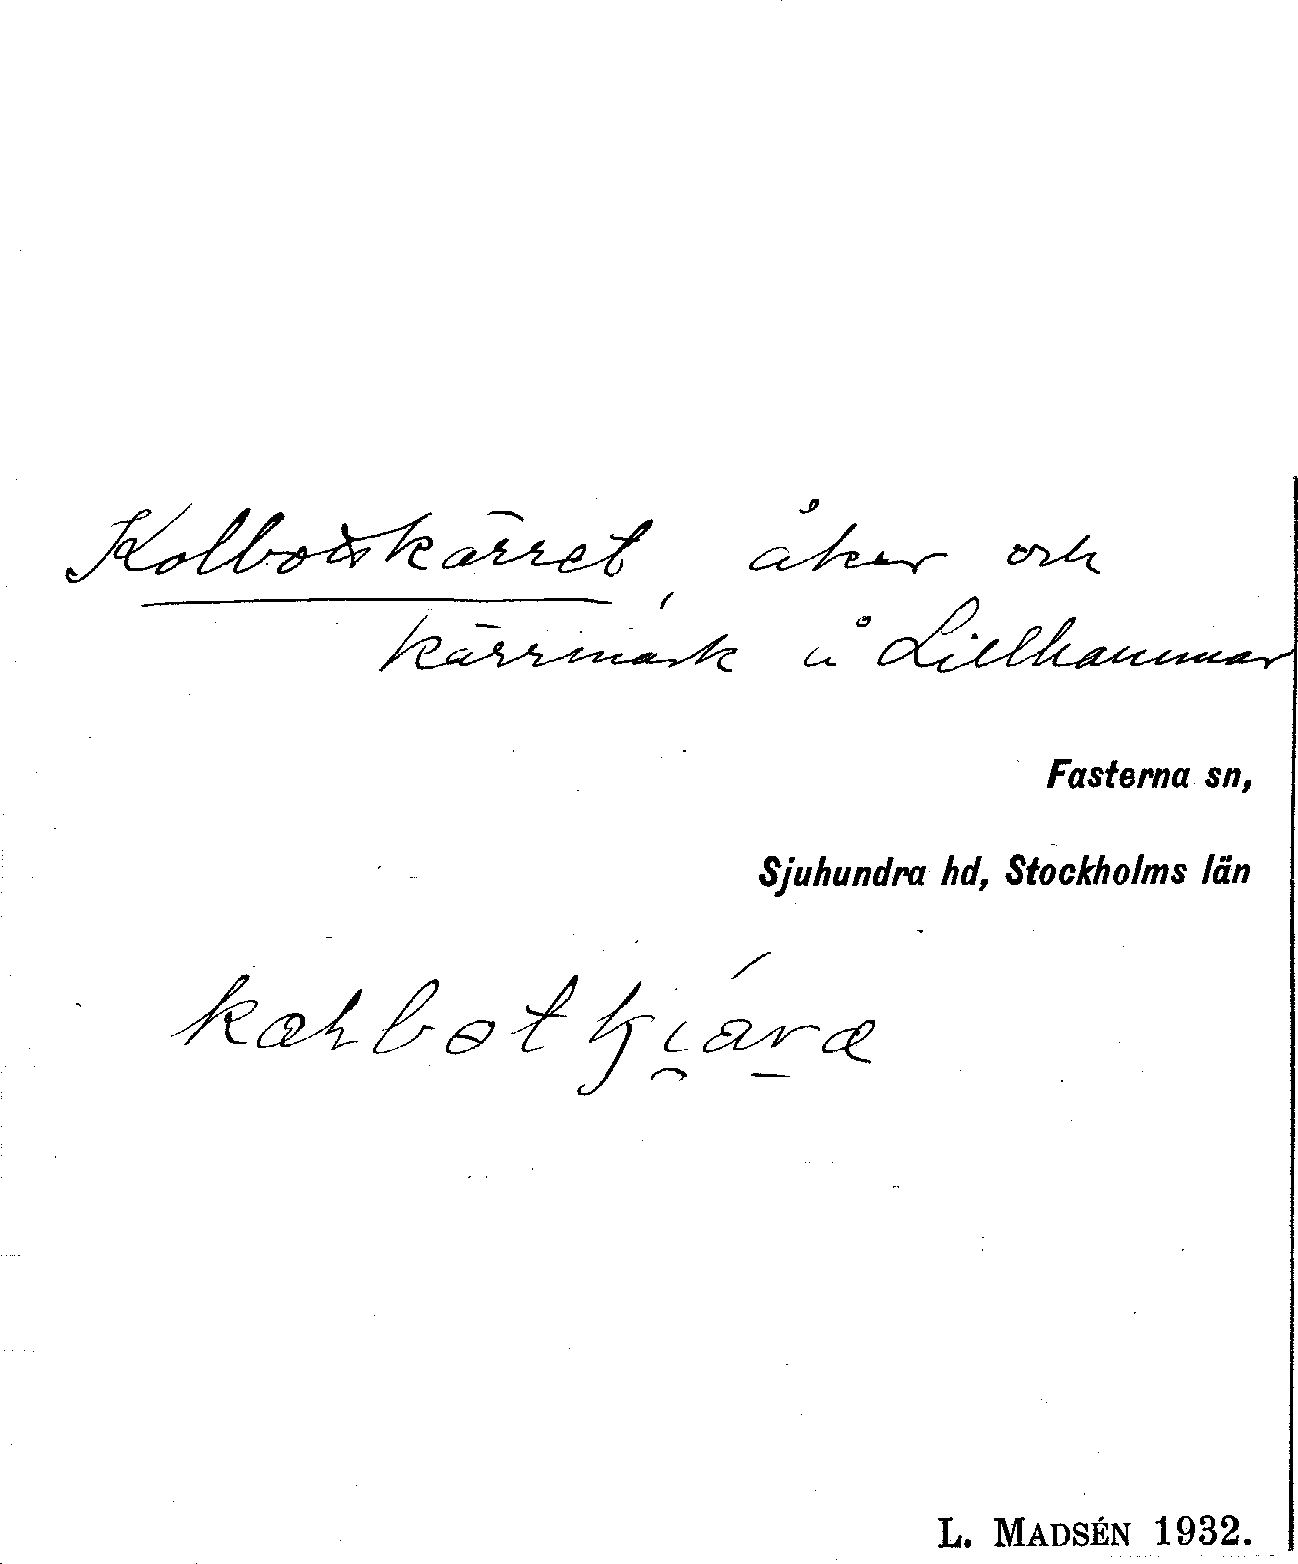 Kolbotskärret, åker och
kärrmark å Lillhammar
Fasterna sn,
Sjuhundra hd, Stockholms län
L. MADSÉN 1932.